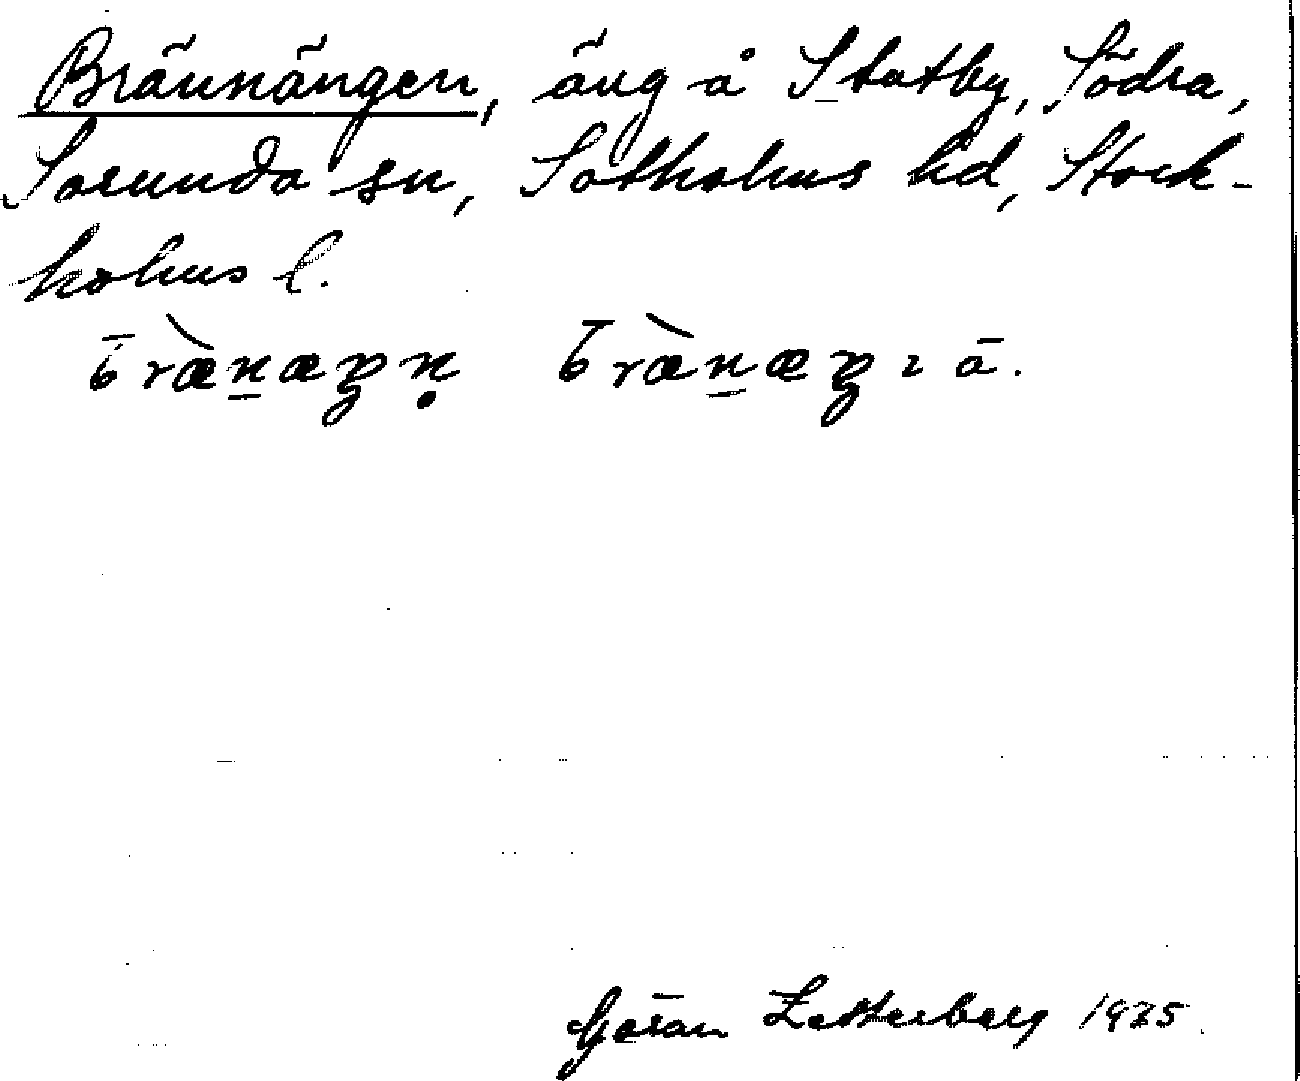 Brännängen, äng å Statby, Södra,
Sorunda sn, Sotholms hd, Stock-
holms l.
bràn̲æŋn̥ bràn̲æŋɩ ā.
Göran Zetterberg 1925.